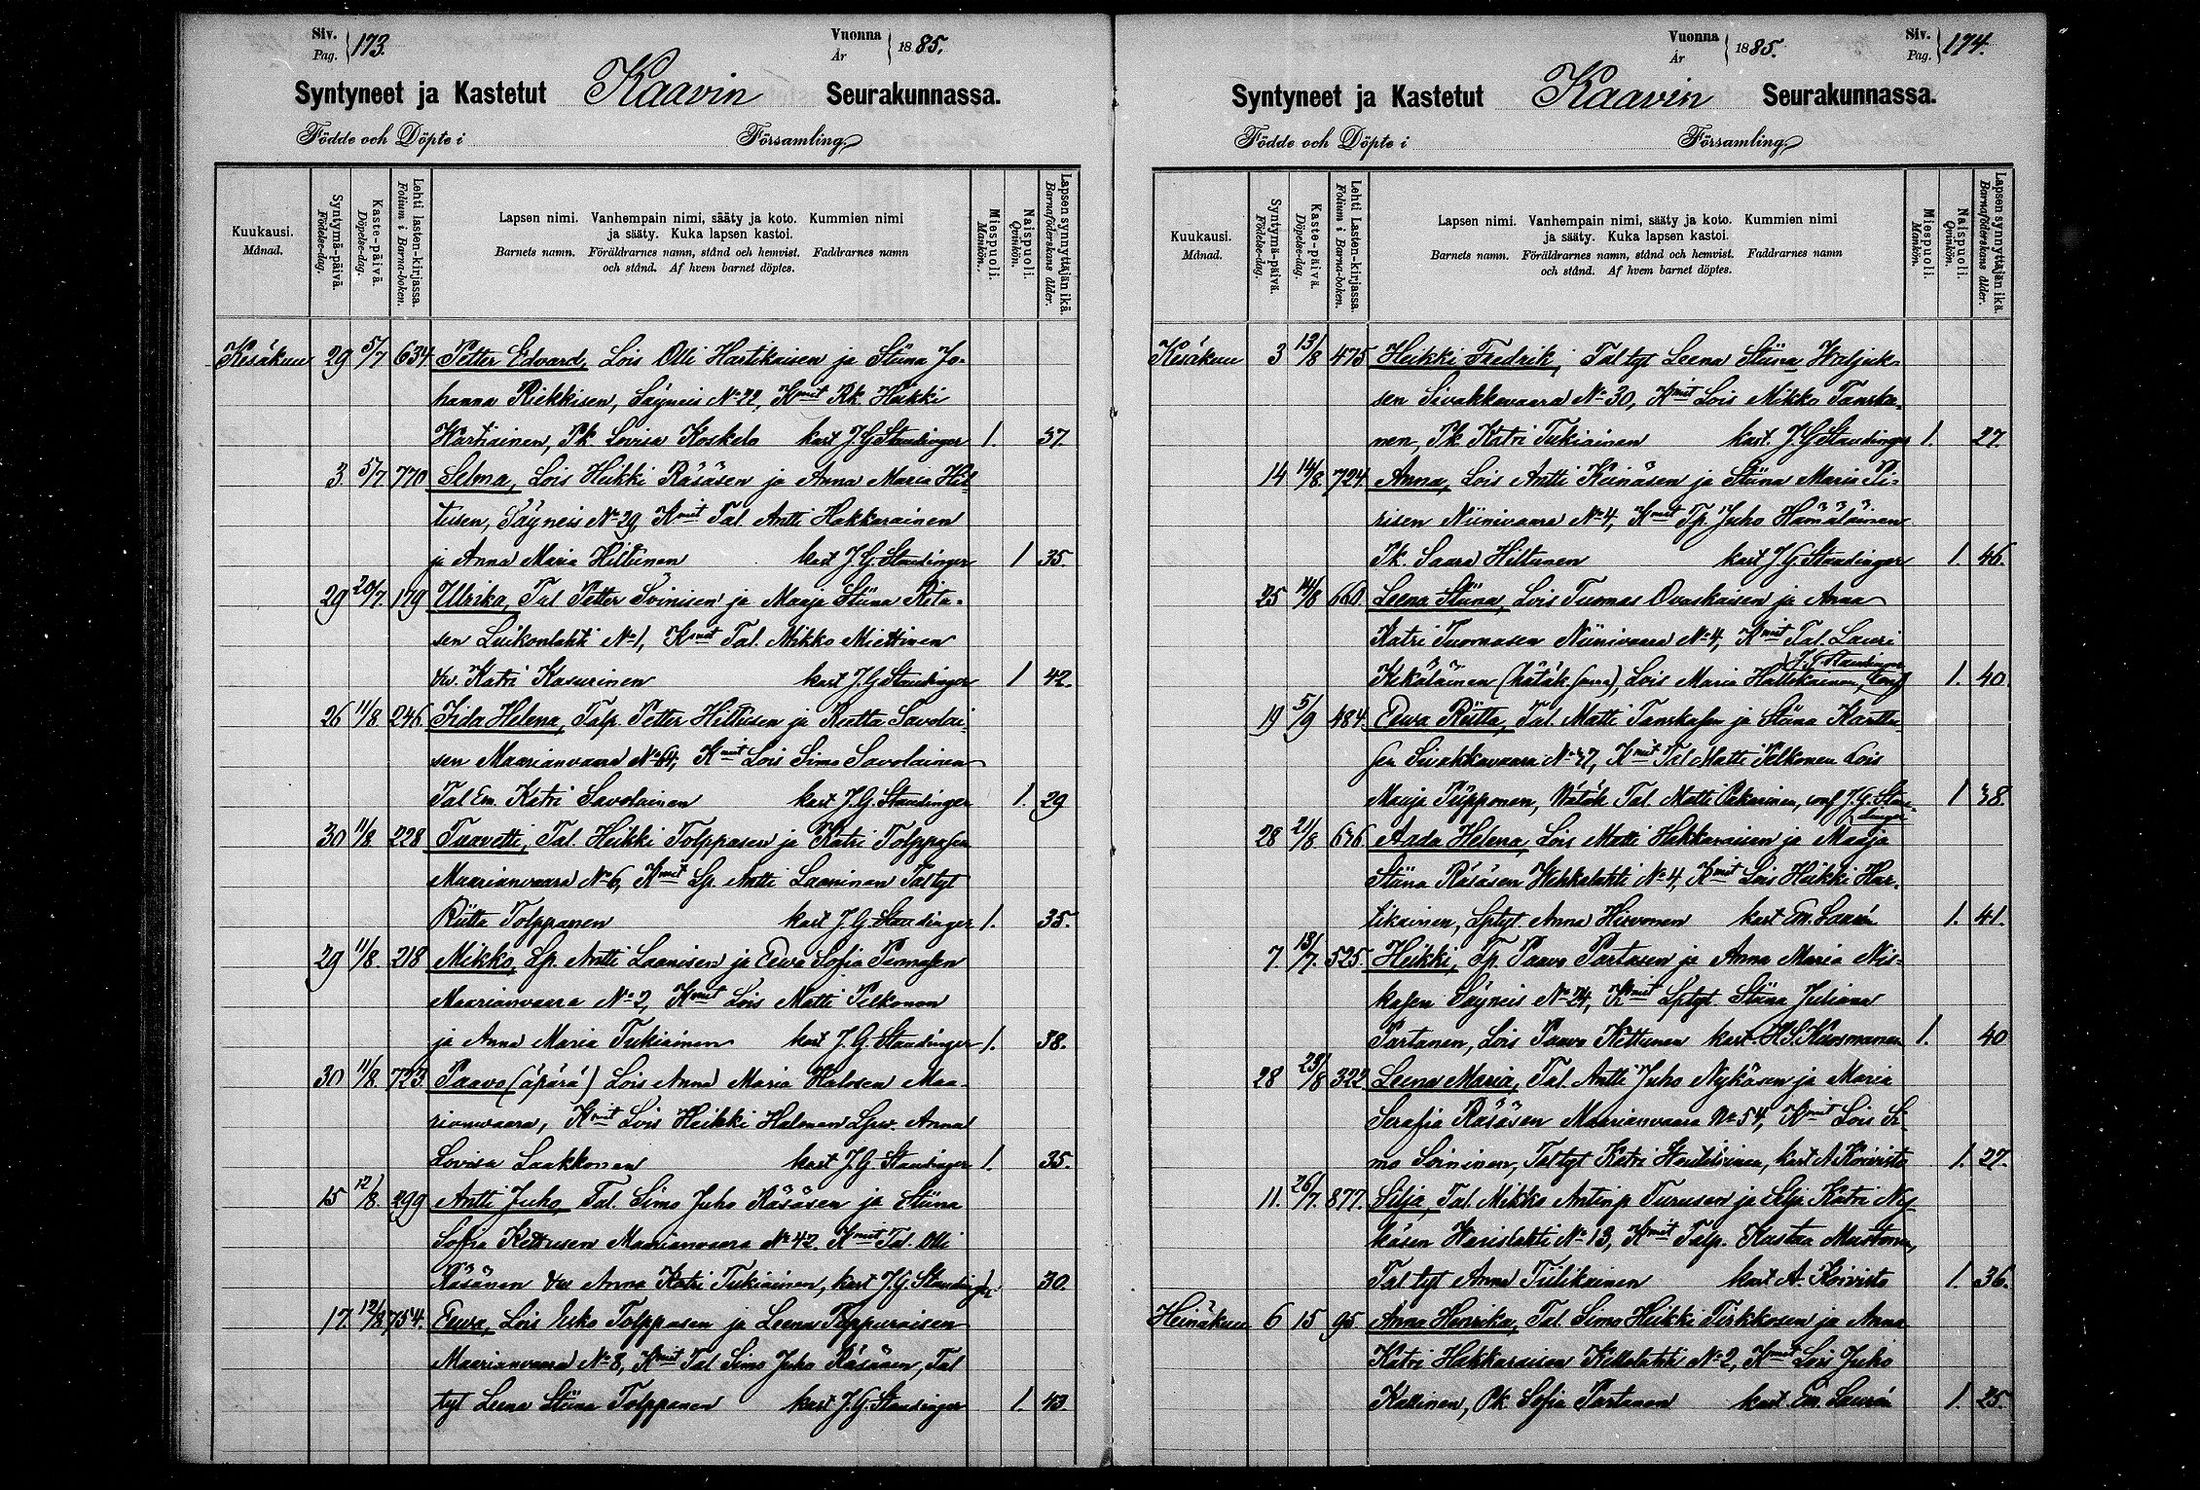 Siv.
Pag. 173.
Vuonna
År 1885.
Syntyneet ja Kastetut Kaavin Seurakunnassa.
Födde och Döpte i Församling
Kuukausi.
Månad.
Syntymä-päivä.
Födelse-dag.
Kaste-päivä.
Döpelse-dag.
Lehti lasten-kirjassa.
Folium i Barna-boken.
Lapsen nimi. Vanhempain nimi, sääty ja koto. Kummien nimi
ja sääty. Kuka lapsen kastoi.
Barnets namn. Föräldrarnes namn, stånd och hemvist. Faddrarnes namn
och stånd. Af hvem barnet döptes.
Miespuoli.
Mankön.
Naispuoli.
Qvinkön.
Lapsen synnyttäjän ikä.
Barnaföderskans ålder.
Kesäkuu 29 5/7 634 Petter Edvard, Lois Olli Hartikaisen ja Stiina Jo-
hanna Riekkisen, Säyneis No 22, Kmit Rk. Heikki
Wartiainen, Pk Lovisa Koskelo kast J.G Staudinger 1. 37
3. 5/7 770 Selma, Lois Heikki Räsäsen ja Anna Maria Hil-
tusen, Säyneis No 29 Kmit Tal. Antti Hakkarainen
ja Anna Maria Hiltunen kast J.G. Staudinger 1 35.
29 20/7. 179 Ulrika, Tal Petter Soinisen ja Maaja Stiina Rita-
sen Luikonlahti No 1, Kmit Tal. Mikko Miettinen
vw. Katri Kasurinen kast J.G Staudinger 1 42.
26 11/8 246. Fida Helena, Talp. Petter Hiltusen ja Reetta Savolai-
sen Maarianvaara No 64, Kmit Lois Simo Savolainen
Tal Em. Katri Savolainen kast J.G. Staudinger 1. 29
30 11/8 228 Taavetti, Tal. Heikki Tolppasen ja Katri Tolppasen
Maarianvaara No 6, Kmit Lp. Antti Laaninen Tal tyt
Riitta Tolppanen kast J.G. Staudinger 1. 35.
29 11/8. 218 Mikko, Lp. Antti Laanisen ja Eewa Sofia
Maarianvaara No 2, Kmit Lois Matti Pelkonen
ja Anna Maria Tukiainen kast J.G. Staudinger 1. 38.
30 11/8. 723. Paavo (äpärä) Lois Anna Maria Halosen Maa-
rianvaara, Kmit Lois Heikki Halonen Anna
Lovisa Laakkonen kast J.G Staudinger 1. 35.
15 12/8. 299 Antti Juho, Tal. Simo Juho Räsäsen ja Stiina
Sofia Kettusen Maarianvaara No 42. Kmit Tal. Olli
Räsänen vw Anna Katri Tukiainen, kast J.G Staudinger 1. 30.
17. 12/8. 754. Eewa, Lois Esko Tolppasen ja Leena Toppuraisen
Maarianvaara No 8, Kmit Tal Simo Juho Räsänen, Tal
tyt Leena Stiina Tolppanen kast J.G. Staudinger 1. 43
Vuonna
År 1885.
Siv.
Pag. 174.
Syntyneet ja Kastetut Kaavin Seurakunnassa.
Födde och Döpte i Församling
Kuukausi.
Månad.
Syntymä-päivä.
Födelse-dag.
Kaste-päivä.
Döpelse-dag.
Lehti Lasten-kirjassa.
Folium i Barna-boken.
Lapsen nimi. Vanhempain nimi, sääty ja koto. Kummien nimi
ja sääty. Kuka lapsen kastoi.
Barnets namn. Föräldrarnes namn, stånd och hemvist. Faddrarnes namn
och stånd. Af hvem barnet döptes.
Miespuoli.
Mankön.
Naispuoli.
Qvinkön.
Lapsen synnyttäjän ikä.
Barnaföderskans ålder.
Kesäkuu 3 13/8 475 Heikki Fredrik, Tal tyt Leena Stiina Waljak-
sen Sivakkavaara No 30, Kmit Lois Mikko Tanska-
nen, Pk Katri Tukiainen kast. J.G Staudinger 1. 27
14 14/8. 724 Anna, Lois Antti Keinäsen ja Stiina Maria Pi-
risen Niinivaara No 4, Kmit Tp. Juho Hämäläinen
Pk. Saara Hiltunen kast J.G. Staudinger 1. 46.
25 14/8 660. Leena Stiina, Lois Tuomas Ovaskaisen ja Anna
Katri Tuomasen Niinivaara No 4, Kmit Tal. Lauri
J.G Staudinger
Kekäläinen (hätäk), Lois Maria conf 1. 40.
19 5/9 484. Eewa Riitta, Tal. Matti Tanskasen ja Stiina Karttu-
sen Sivakkavaara No 27, Kmit Tal Matti Pelkonen Lois
Maija Piipponen, Hätäk Tal. Matti Pekarinen, conf J.G. Stau- 1 38.
dinger
28 21/8 676 Aada Helena, Lois Matti Hakkaraisen ja Maaja
Stiina Räsäsen Wehkalahti No 4, Kmit Lois Heikki Har-
tikainen, Lptyt Anna Hirvonen kast Em. Laurén 1. 41.
7. 13/7. 525. Heikki, Tp. Paavo Partasen ja Anna Maria Nis-
kasen Säyneis No 24, Kmit Lptyt Stiina Juliana
Partanen, Lois Paavo Kettunen kast H.S. Kuosmanen 1. 40
28 23/8 322 Leena Maria, Tal. Antti Juho Nykäsen ja Maria
Serafia Räsäsen Maarianvaara No 54, Kmit Lois Si-
mo Soininen, Tal tyt Katri, kast A Koivisto 1. 27.
11. 26/7. 877. Silja, Tal. Mikko Antinp Turusen ja Silja Katri Ny-
käsen Warislahti No 13, Kmit Talp. Kustaa Mustonen,
Tal tyt Anna Tiilikainen kast A. Koivisto 1. 36.
Heinäkuu 6 15 95 Anna Henrika, Tal. Simo Heikki Pirkkosen ja Anna
Katri Hakkaraisen Kettulahti No 2, Kmit Lois Juho
Kallinen, Pk Sofia Partanen kast Em. Laurén 1. 25.